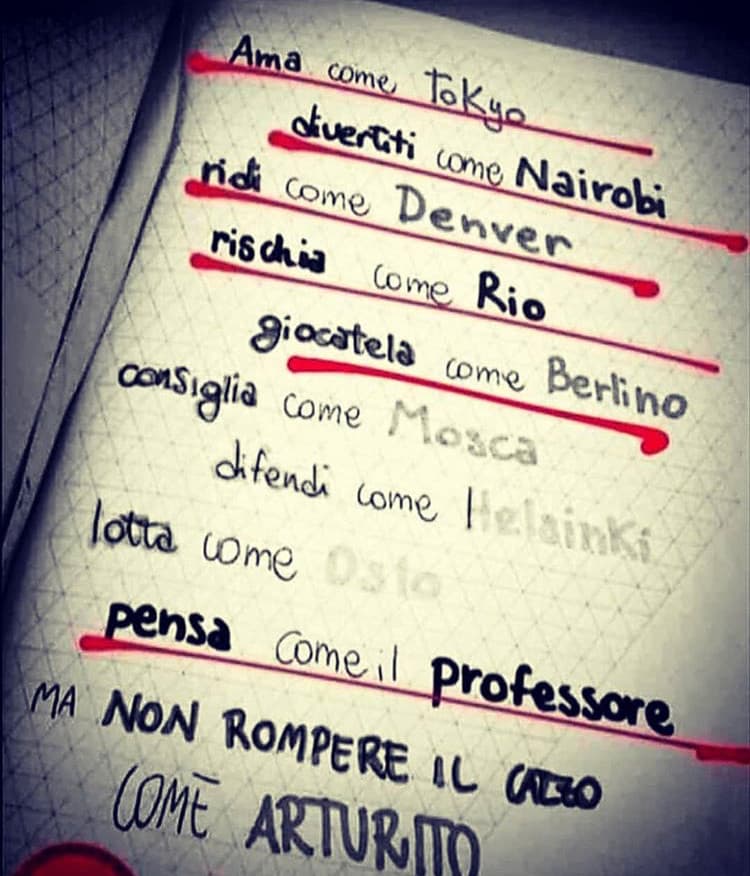 Ama come Tokyo
divertiti come Nairobi
ridi come Denver
rischia come Rio
giocatela come Berlino
consiglia come Mosca
difendi come Helsinki
lotta come Oslo
pensa come il professore
MA NON ROMPERE IL CAZZO
COME ARTURITO